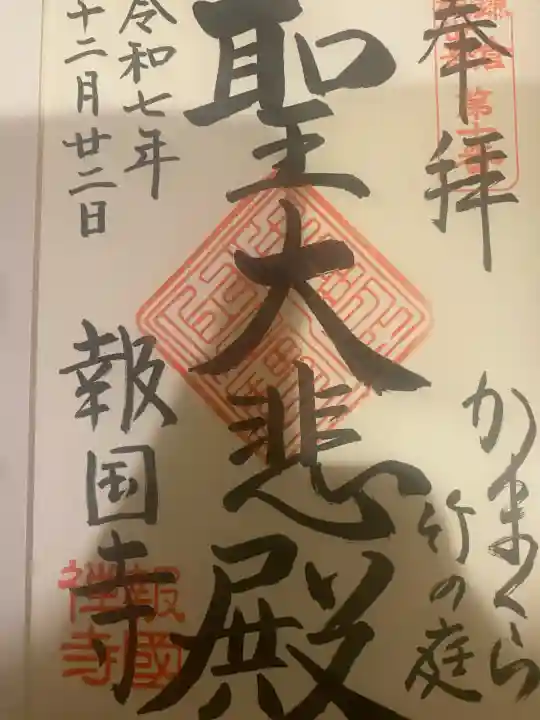 奉拝
かまくら
竹の庭
聖大悲殿
令和七年
十二月廿二日
報国寺
報國
禅寺